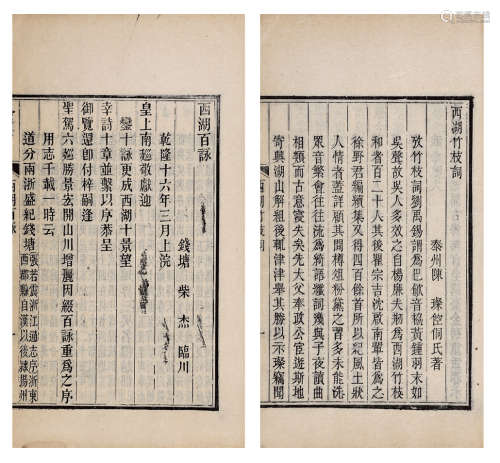 西湖竹枝詞
泰州陳 璨
氏著
攷竹枝詞劉禹錫謂為巴歈音協黃鐘羽末如
吳聲故吳人多效之自楊廉夫剏為西湖竹枝
和者百二十人其後瞿宗吉沈啟南輩皆為之
徐野君繼續集又得四百餘首所以紀風土狀
人情者蓋詳顧其間樽俎粉黛之習多未能洗
眾音繁會往往流為綺語
詞幾與子夜讀曲
相類而古意寖失矣先大父奉政公宦遊斯地
寄興湖山解組後輒津津舉其勝以示璨竊聞
西湖百詠
乾隆十六年三月上浣
錢塘 柴 杰 臨川
皇上南廵敬獻迎
鑾十詠更成西湖十景望
幸詩十章並繫以序恭呈
御覽還卽付梓嗣逢
聖駕六廵勝景宏開山川增麗因綴百詠重為之序
用志千載一時云
道分兩浙盛紀錢塘
張若雲浙江通志序浙東
西郡縣自漢以後隷揚州
西湖百詠